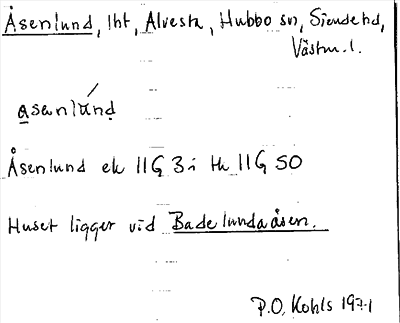 Åsenlund, lht, Alvesta, Hubbo sn, Siende hd,
Västm. l.
asenlund
Åsenlund ek 11G 3i tk 11G SO
Huset ligger vid Badelundaåsen.
P.O. Kohls 1971